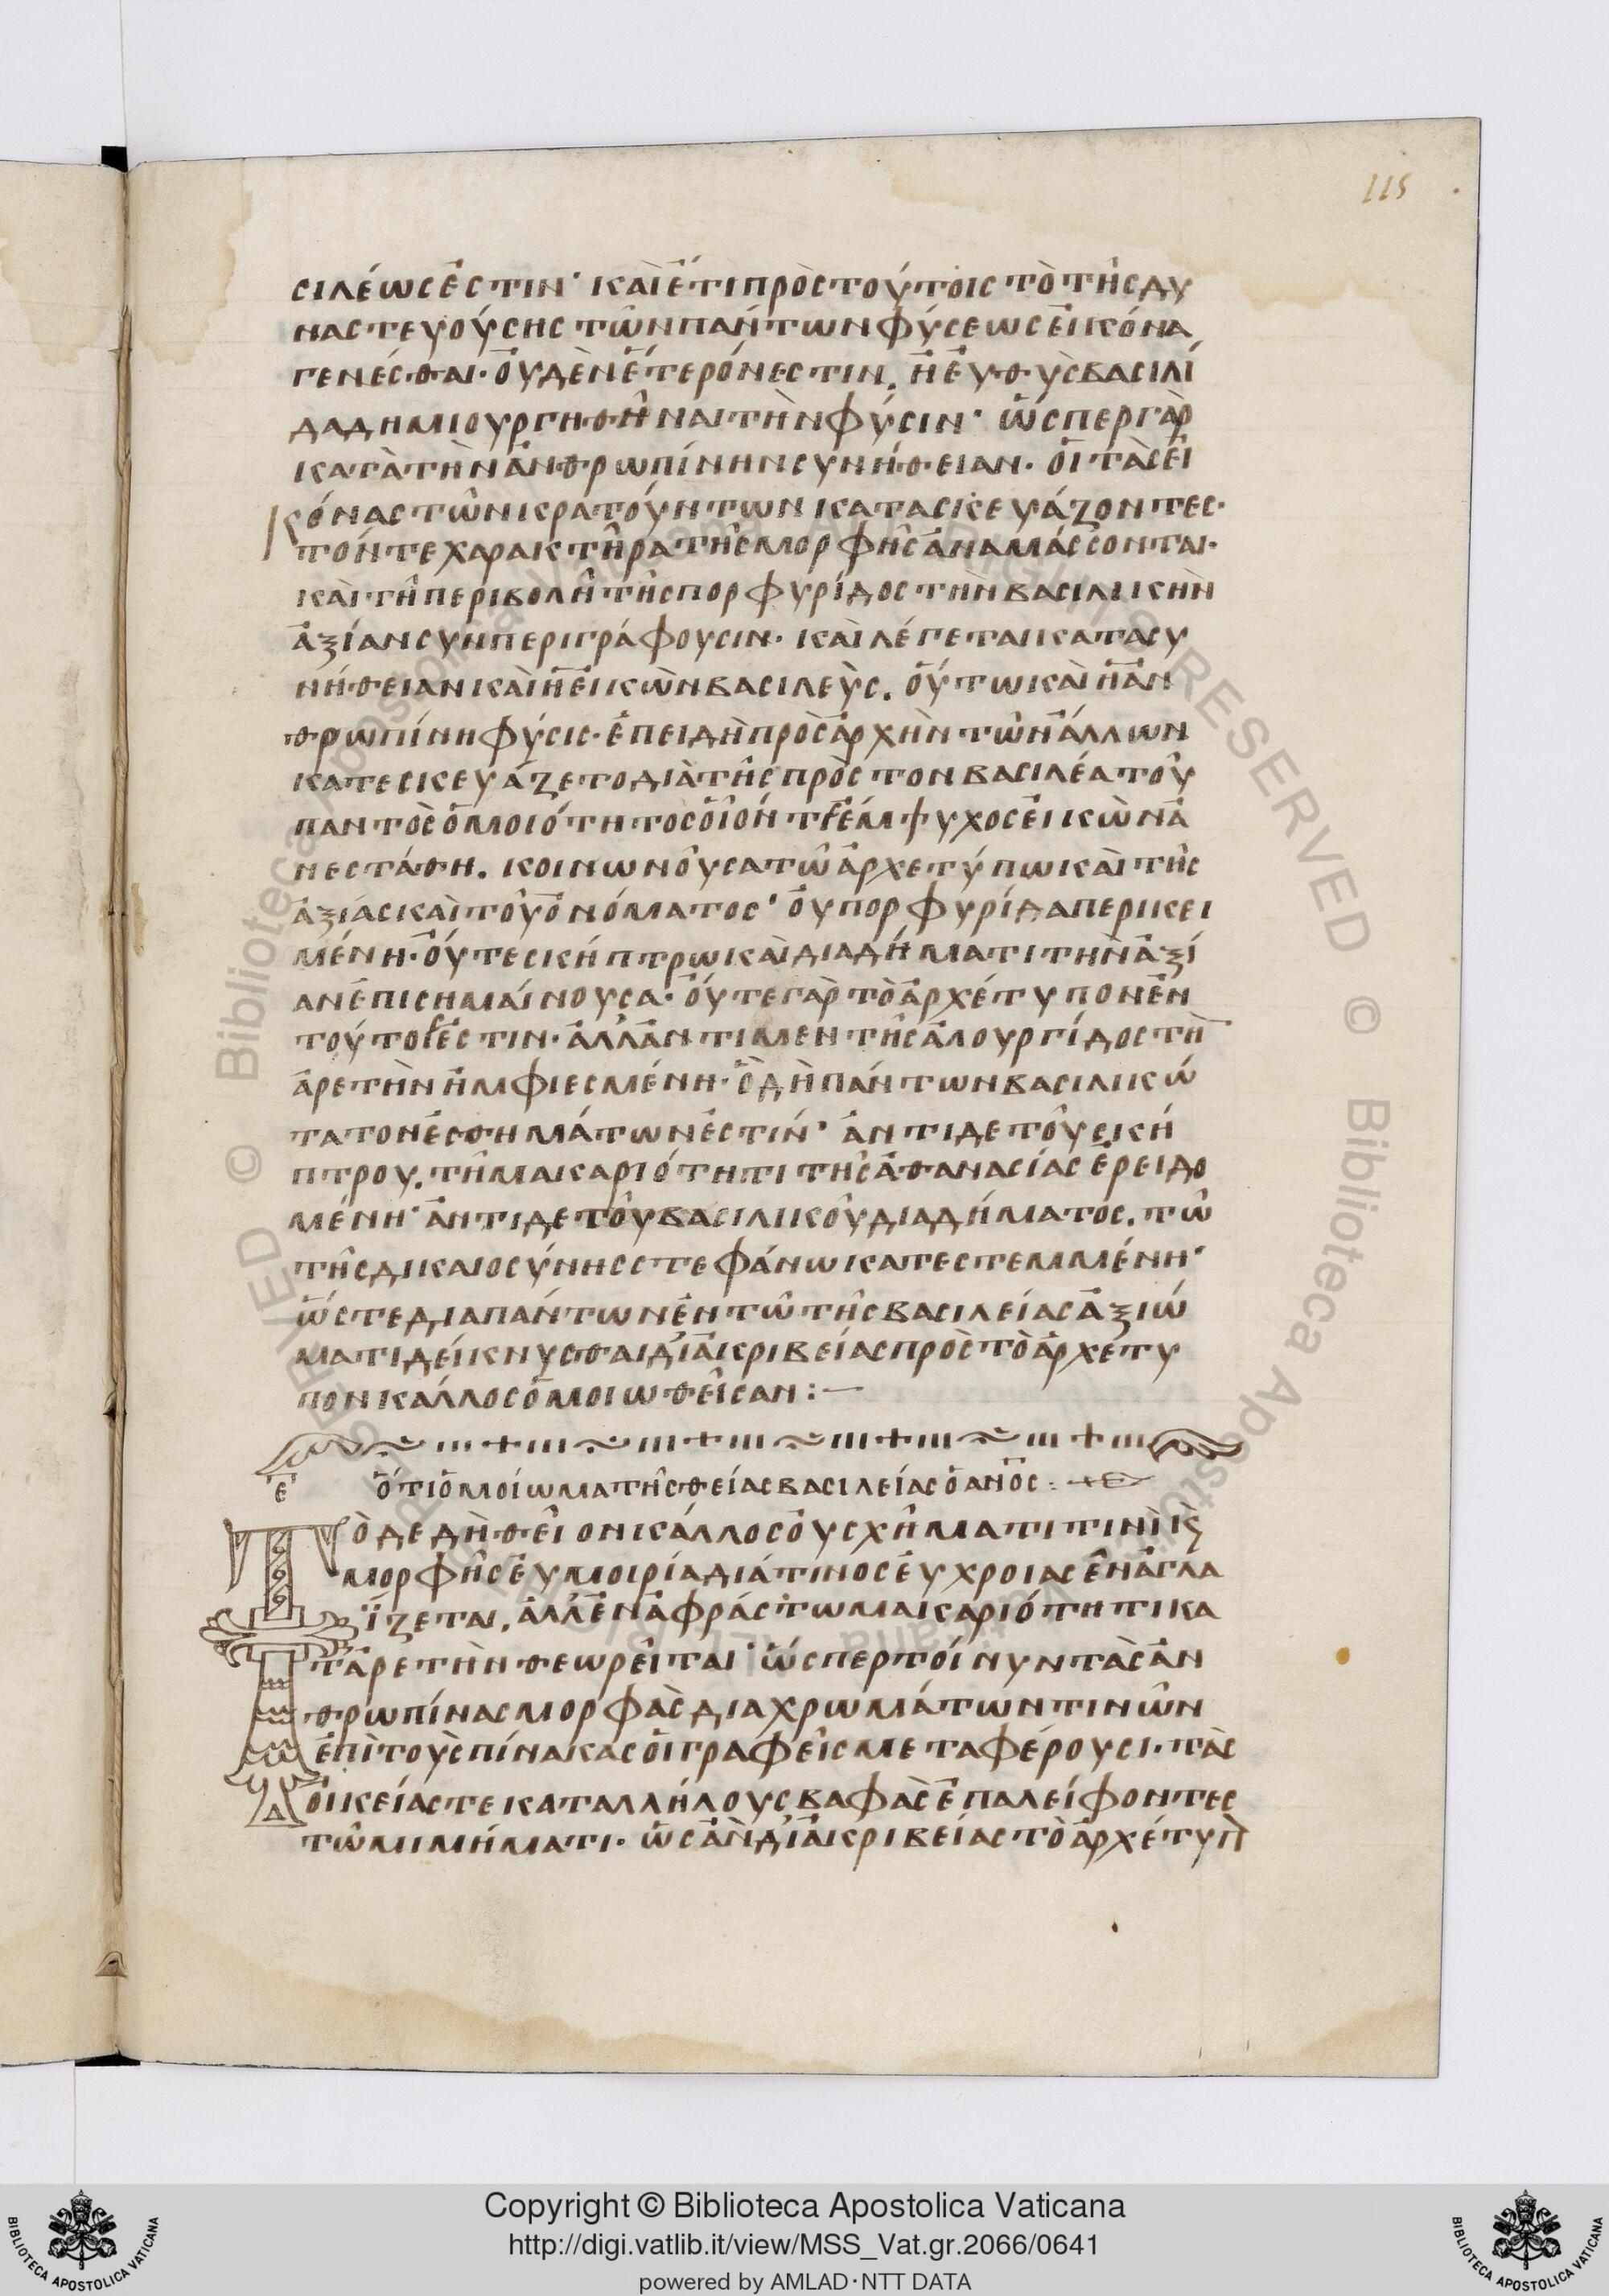 115
σιλέως ἐστιν· καὶ ἔτι πρὸς τούτοις τὸ τῆς δυ
ναστευούσης τῶν πάντων φύσεως εἰκόνα
γενέσθαι· οὐδὲν ἕτερόν εστιν, ἢ εὐθὺς βασιλί
δα δημιουργηθῆναι τὴν φύσιν· ὥσπερ γὰρ
κατὰ τὴν ἀνθρωπίνην συνήθειαν· οἱ τὰς εἰ
κόνας τῶν κρατούντων κατασκευάζοντες·
τόν τε χαρακτῆρα τῆς μορφῆς ἀναμάσσονται·
καὶ τῆ περιβολῆ τῆς πορφυρίδος τὴν βασιλικὴν
ἀξίαν συνπεριγράφουσιν· καὶ λέγεται κατα συ
νήθειαν καὶ ἡ εἰκὼν βασιλεὺς. οὕτω καὶ ἡ ἀν
θρωπίνη φύσις· ἐπειδὴ πρὸς ἀρχὴν τῶν ἄλλων
κατεσκευάζετο διὰ τῆς πρὸς τον βασιλέα τοῦ
παντὸς ὁμοιότητος οἷόν τις ἔμψυχος εἰκὼν ἀ
νεστάθη. κοινωνοῦσα τῶ ἀρχετύπω καὶ τῆς
ἀξίας καὶ τοῦ ὀνόματος· οὐ πορφυρίδα περικει
μένη· οὔτε σκήπτρω καὶ διαδήματι τὴν ἀξί
αν ἐπισημαίνουσα· οὔτε γὰρ τὸ ἀρχέτυπον ἐν
τούτοις ἐστιν· ἀλλ' ἀντι μεν τῆς ἁλουργίδος τὴ
ἀρετὴν ἠμφιεσμένη· ὃ δὴ πάντων βασιλικώ
τατον ἐσθημάτων ἐστίν· ἀντι δε τοῦ σκή
πτρου, τῆ μακαριότητι τῆς ἀθανασίας ἐρειδο
μένη· ἀντι δε τοῦ βασιλικοῦ διαδήματος, τῶ
τῆς δικαιοσύνης στεφάνω κατεστεμμένη·
ὥστε δια πάντων ἐν τῶ τῆς βασιλείας ἀξιώ
ματι δείκνυσθαι δι' ἀκριβείας πρὸς τὸ ἀρχέτυ
πον κάλλος ὁμοιωθεῖσαν :—
ε ὅτι ὁμοίωμα τῆς θείας βασιλείας ὁ ανὸς :
Τὸ δε δὴ θεῖον κάλλος οὐ σχήματι τινὶ κς
μορφῆς εὐμοιρία διά τινος εὐχροιας ἐναγλα
ΐζεται, ἀλλ' ἐν ἀφράστω μακαριότητι κα
τ' ἀρετὴν θεωρεῖται· ὥσπερ τοίνυν τὰς ἀν
θρωπίνας μορφὰς δια χρωμάτων τινῶν
ἐπὶ τοὺς πίνακας οἱ γραφεῖς μεταφέρουσι· τὰς
οἰκείας τε καταλλήλους βαφὰς ἐπαλείφοντες
τῶ μιμήματι· ὡς ἂν δι' ἀκριβείας τὸ ἀρχέτυπ
Copyright © Biblioteca Apostolica Vaticana
http://digi.vatlib.it/view/MSS_Vat.gr.2066/0641
powered by AMLAD·NTT DATA
BIBLIOTECA APOSTOLICA VATICANA
BIBLIOTECA APOSTOLICA VATICANA